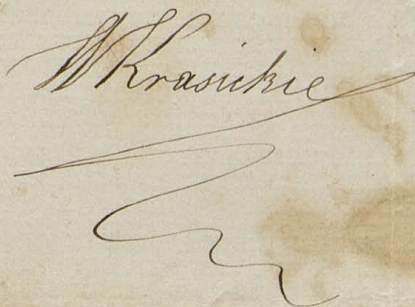 W Krasickie